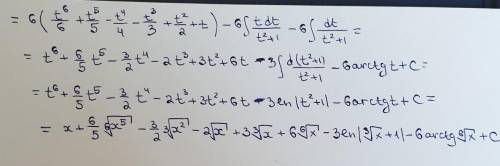 = 6(t⁶/6 + t⁵/5 - t⁴/4 - t³/3 + t²/2 + + t) - 6∫ tdt/t²+1 - 6∫ dt/t²+1 =
= t⁶ + 6/5 t⁵ - 3/2 t⁴ - 2t³ + 3t² + 6t - 3∫ d(t²+1)/t²+1 - 6arctgt + C =
= t⁶ + 6/5 t⁵ - 3/2 t⁴ - 2t³ + 3t² + 6t - 3ln|t²+1| - 6arctgt + C =
= x + 6/5 ⁶√x⁵ - 3/2 ³√x² - 2√x + 3 ³√x + 6 ⁶√x - 3ln|³√x + 1| - 6arctg ⁶√x + C